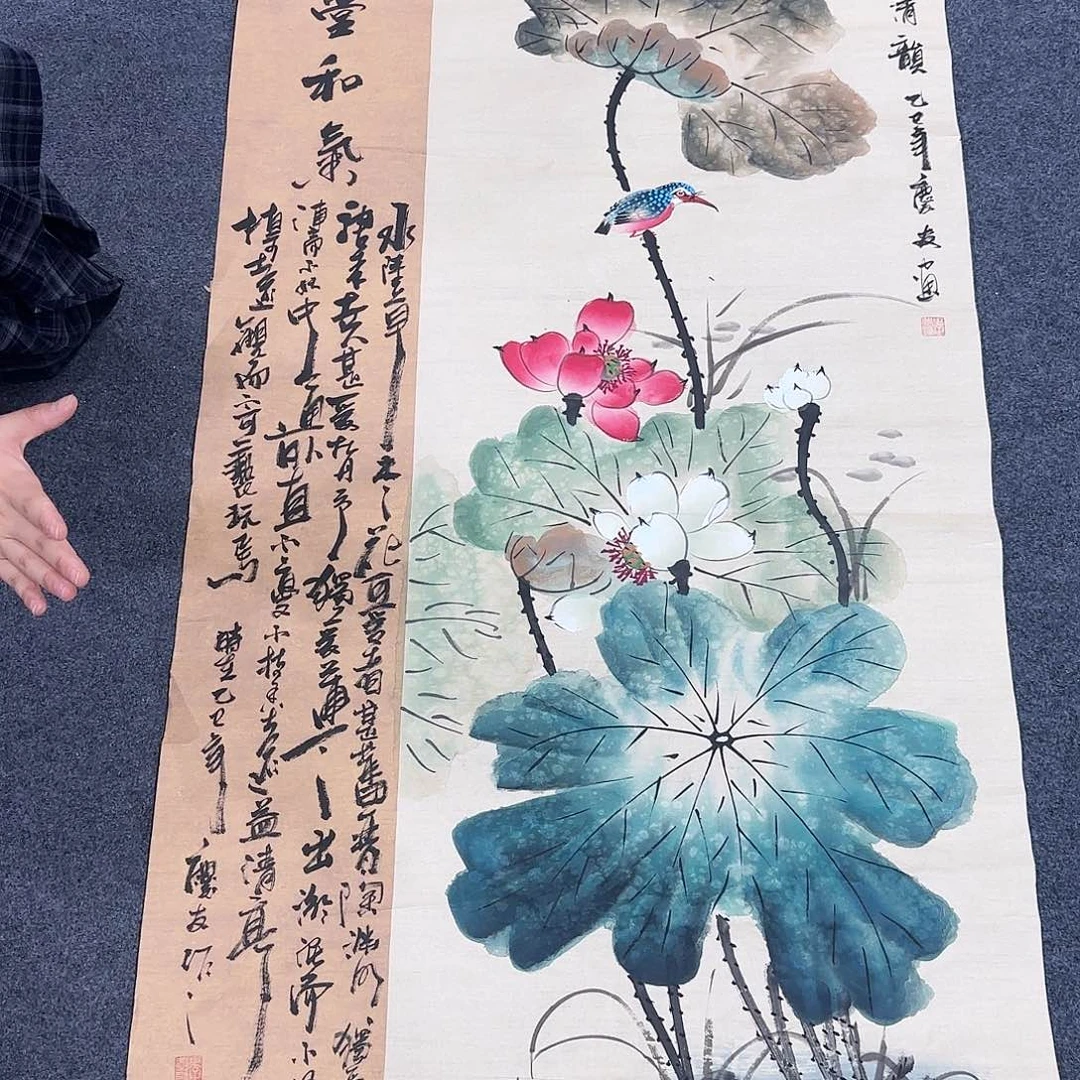 清韻 乙巳年慶友画
堂和氣
水陸草木之花可愛者甚蕃晋陶渊明獨
来世人甚爱牡丹予獨爱蓮之出淤泥而不
漣而不妖中通外直不蔓不枝香远益清亭
植可遠觀而不可褻玩焉
時在乙巳年慶友作